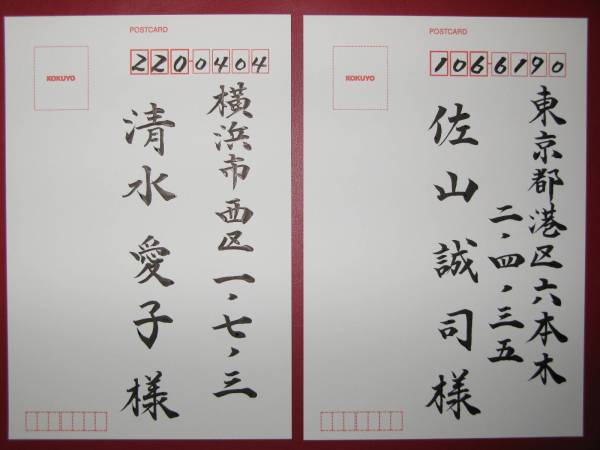 POSTCARD
KOKUYO
220-0404
横浜市西区一、七、三
清水愛子様
POSTCARD
KOKUYO
106-6190
東京都港区六本木
二、四、三五
佐山誠司様